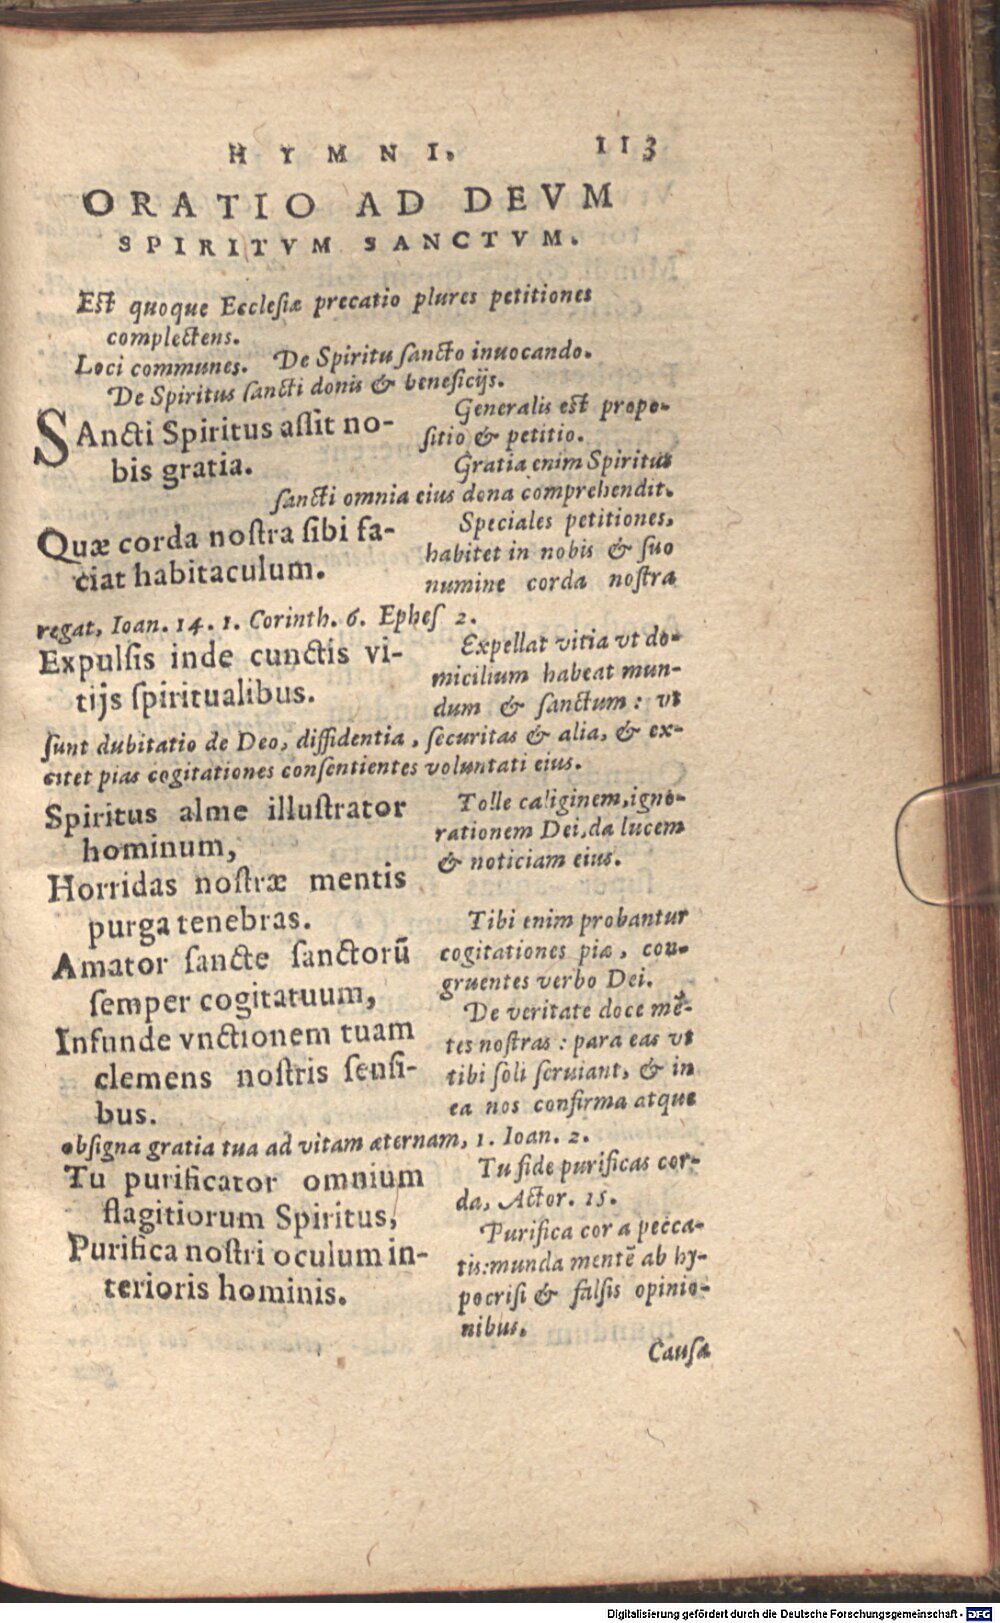 HYMNI. 113
ORATIO AD DEVM
SPIRITVM SANCTVM.
Est quoque Ecclesiæ precatio plures petitiones
complectens.
Loci communes. De Spiritu sancto inuocando.
De Spiritus sancti donis & beneficijs.
SAncti Spiritus assit no-
bis gratia.
Generalis est propo-
sitio & petitio.
Gratia enim Spiritus
sancti omnia eius dona comprehendit.
Quæ corda nostra sibi fa-
ciat habitaculum.
Speciales petitiones,
habitet in nobis & suo
numine corda nostra
regat, Ioan. 14. 1. Corinth. 6. Ephes 2.
Expulsis inde cunctis vi-
tijs spiritualibus.
Expellat vitia vt do-
micilium habeat mun-
dum & sanctum: vt
sunt dubitatio de Deo, diffidentia, securitas & alia, & ex-
citet pias cogitationes consentientes voluntati eius.
Spiritus alme illustrator
hominum,
Horridas nostræ mentis
purga tenebras.
Tolle caliginem, igno-
rationem Dei, da lucem
& noticiam eius.
Amator sancte sanctorū
semper cogitatuum,
Infunde vnctionem tuam
clemens nostris sensi-
bus.
Tibi enim probantur
cogitationes piæ, con-
gruentes verbo Dei.
De veritate doce mē-
tes nostras: para eas vt
tibi soli seruiant, & in
ea nos confirma atque
obsigna gratia tua ad vitam æternam, 1. Ioan. 2.
Tu purificator omnium
flagitiorum Spiritus,
Purifica nostri oculum in-
terioris hominis.
Tu fide purificas cor-
da, Actor. 15.
Purifica cor a pecca-
tis: munda mentē ab hy-
pocrisi & falsis opinio-
nibus.
Causa
Digitalisierung gefördert durch die Deutsche Forschungsgemeinschaft - DFG